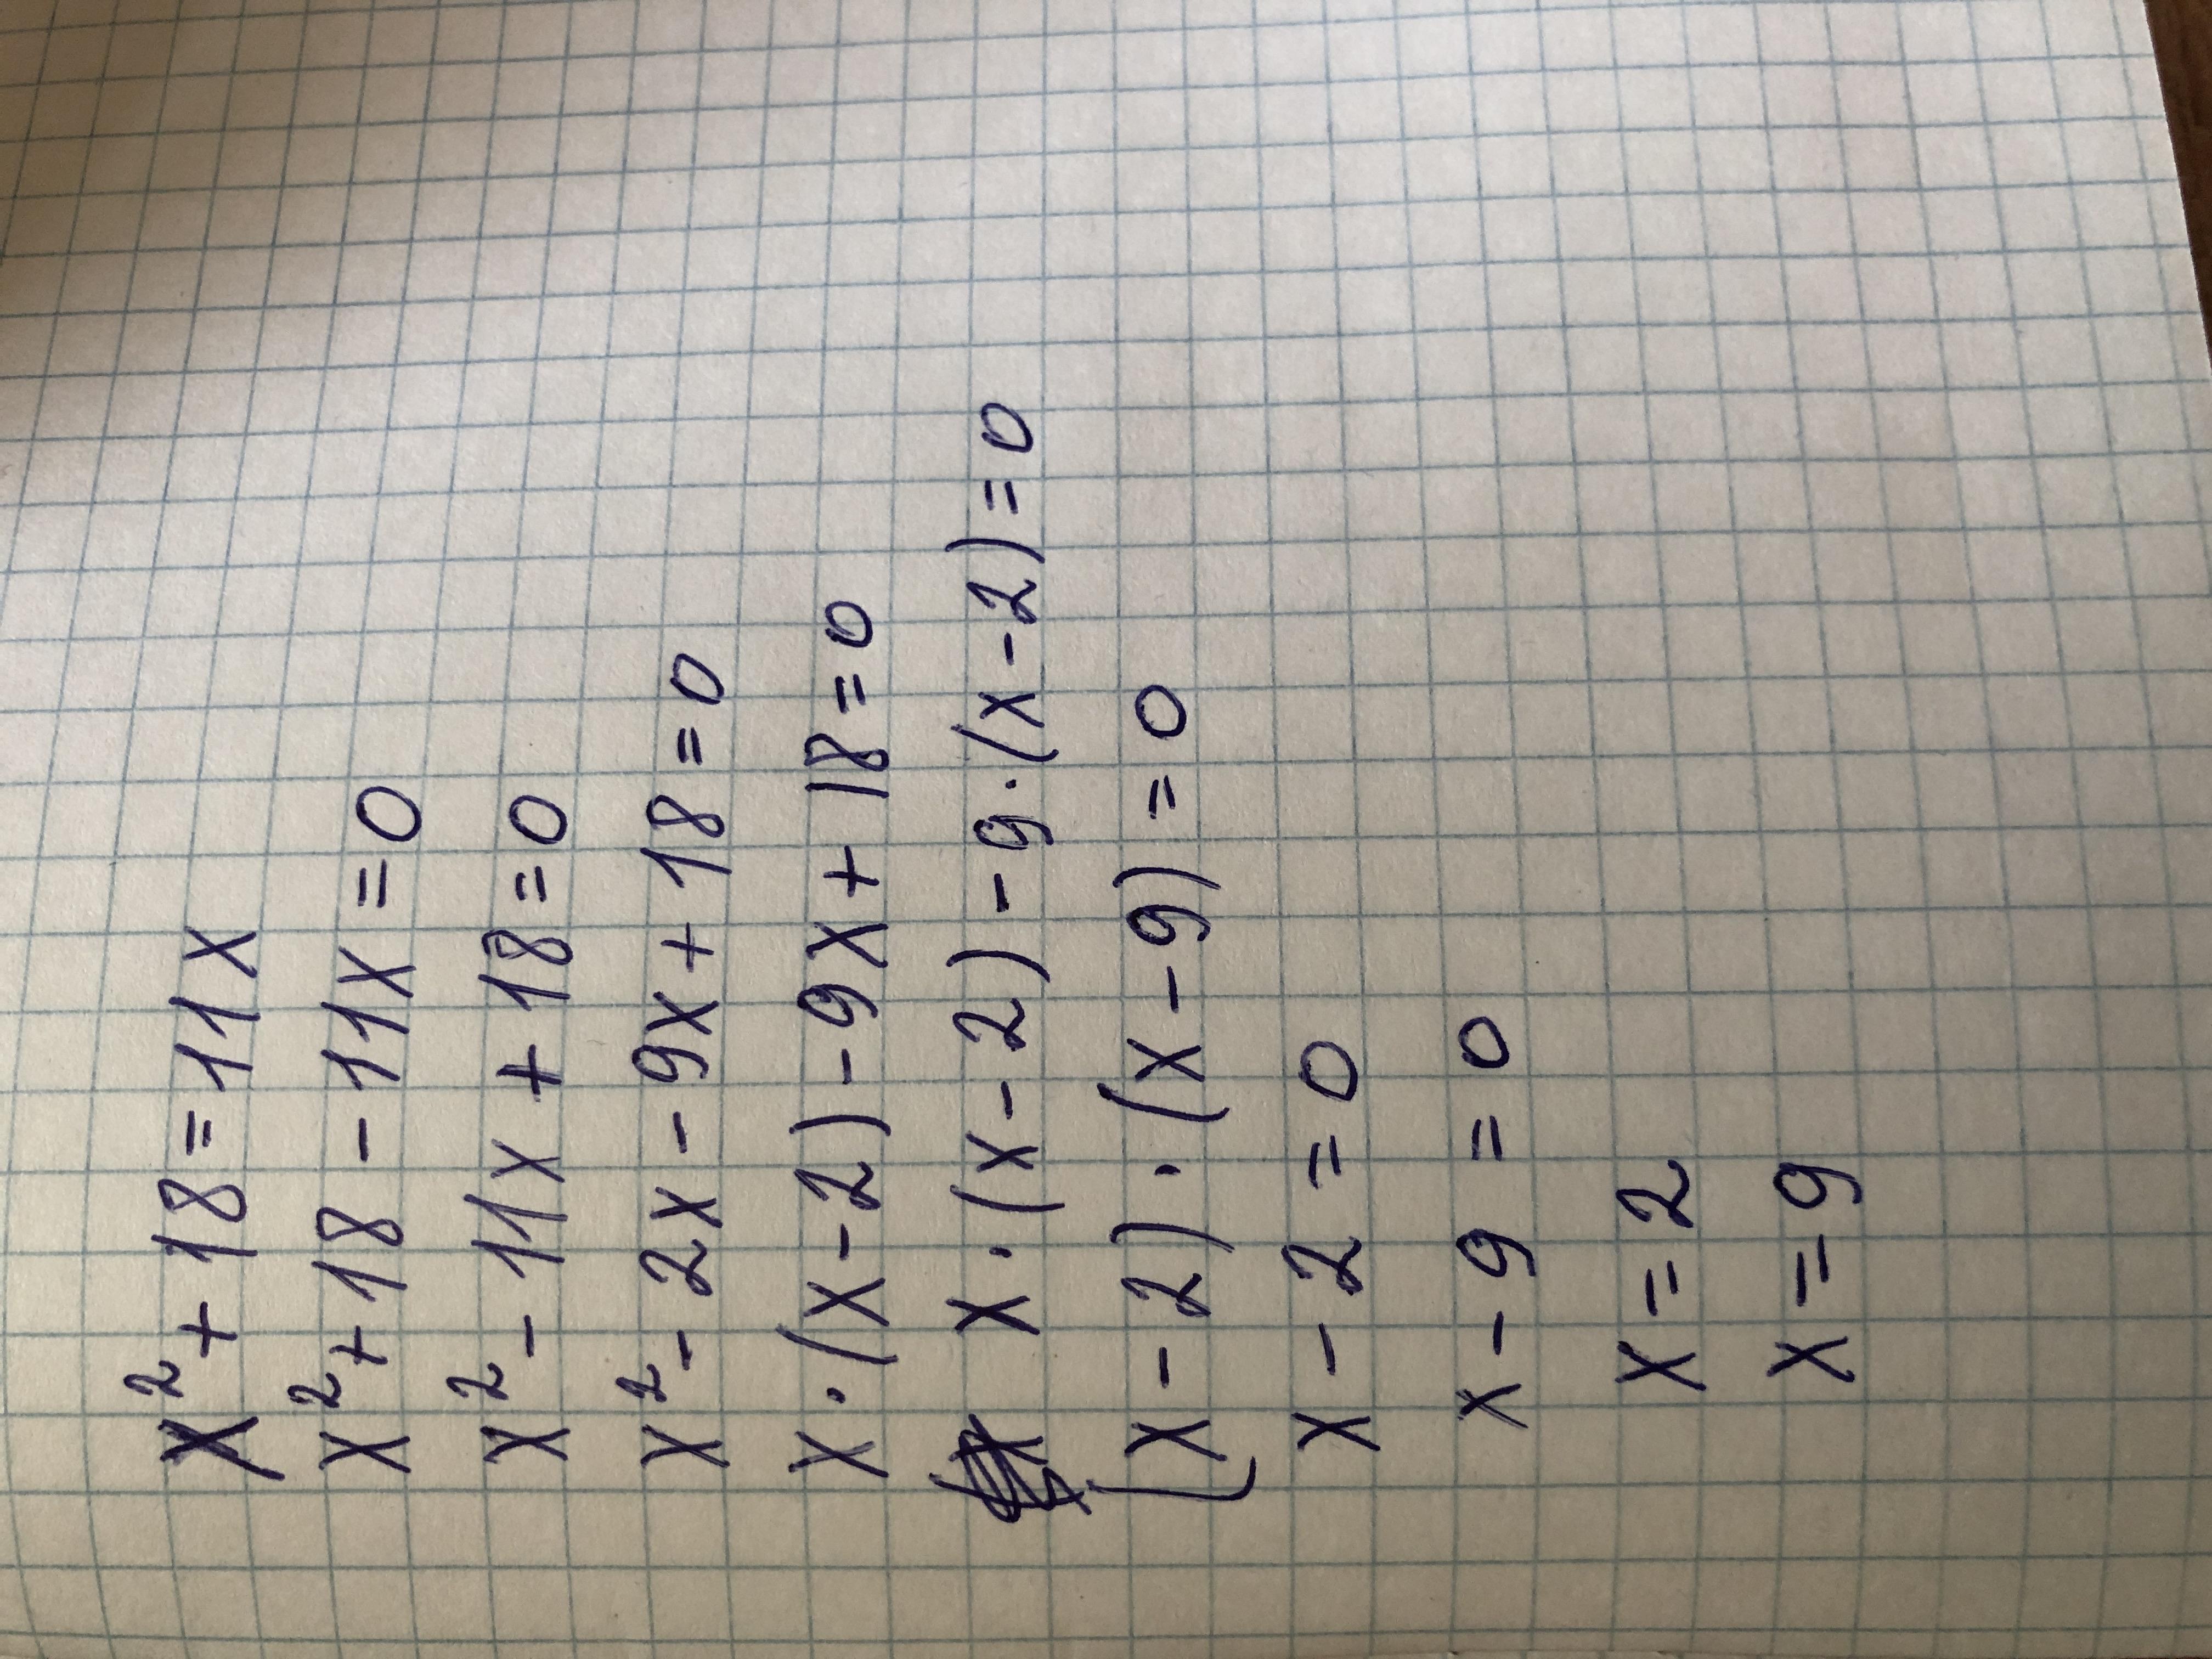 x² + 18 = 11x
x² + 18 - 11x = 0
x² - 11x + 18 = 0
x² - 2x - 9x + 18 = 0
x · (x - 2) - 9x + 18 = 0
x · (x - 2) - 9 · (x - 2) = 0
(x - 2) · (x - 9) = 0
x - 2 = 0
x - 9 = 0
x = 2
x = 9